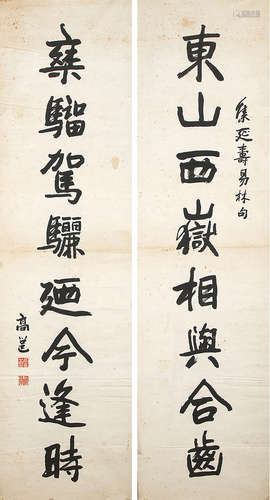 東山西嶽相與合齒
集延壽易林句
椉騮駕驪廼今逢時
高邕